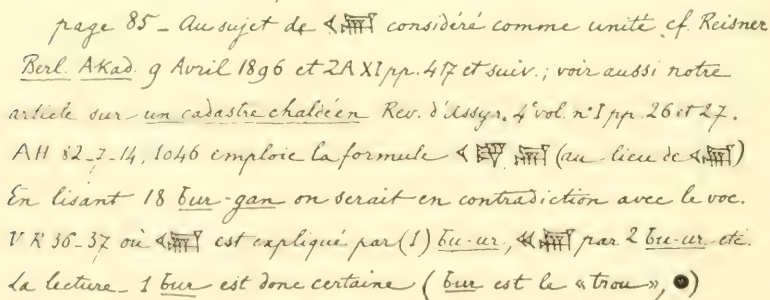 page 85 _ Au sujet de 𒌋𒃷 considéré comme unité cf. Reisner
Berl. Akad. 9 Avril 1896 et ZA XI pp. 417 et suiv.; voir aussi notre
article sur un cadastre chaldéen Rev. d'Assyr. 4e vol. n° I pp. 26 et 27.
AH 82_7_14, 1046 emploie la formule 𒌋 𒃷 (au lieu de 𒌋𒃷)
En lisant 18 bur-gan on serait en contradiction avec le voc.
V R 36-37 où 𒌋𒃷 est expliqué par (1) bu-ur, 𒌋𒌋𒃷 par 2 bu-ur etc.
La lecture _ 1 bur est donc certaine ( bur est le « trou », ●)